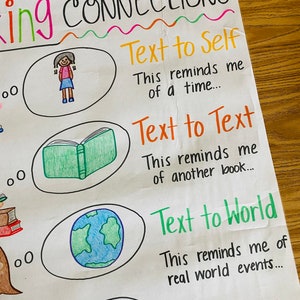 CONNECTIONS
Text to Self
This reminds me
of a time...
Text to Text
This reminds me
of another book...
Text to World
This reminds me of
real world events...